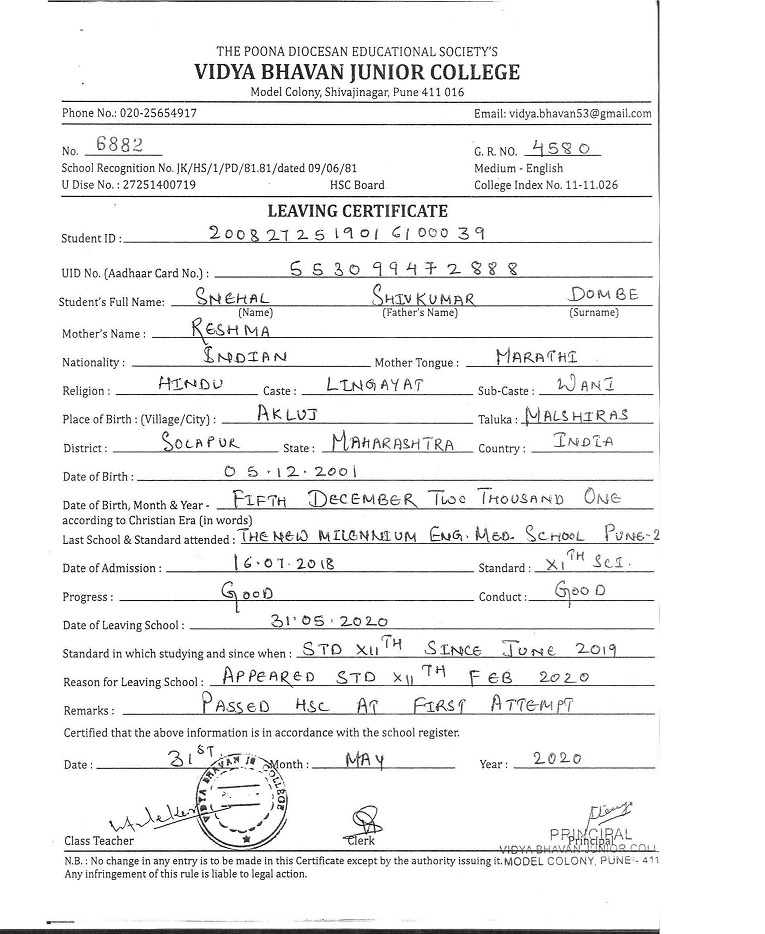 THE POONA DIOCESAN EDUCATIONAL SOCIETY'S
VIDYA BHAVAN JUNIOR COLLEGE
Model Colony, Shivajinagar, Pune 411 016
Phone No.: 020-25654917 Email: vidya.bhavan53@gmail.com
No. 6882 G. R. NO. 4580
School Recognition No. JK/HS/1/PD/81.81/dated 09/06/81 Medium - English
U Dise No. : 27251400719 HSC Board College Index No. 11-11.026
LEAVING CERTIFICATE
Student ID : 2008272519016100039
UID No. (Aadhaar Card No.) : 553099472888
Student's Full Name: SNEHAL SHIVKUMAR DOMBE
(Name) (Father's Name) (Surname)
Mother's Name : RESHMA
Nationality : INDIAN Mother Tongue : MARATHI
Religion : HINDU Caste : LINGAYAT Sub-Caste : WANI
Place of Birth : (Village/City) : AKLUJ Taluka : MALSHIRAS
District : SOLAPUR State : MAHARASHTRA Country : INDIA
Date of Birth : 05.12.2001
Date of Birth, Month & Year - FIFTH DECEMBER TWO THOUSAND ONE
according to Christian Era (in words)
Last School & Standard attended : THE NEW MILENNIUM ENG. MED. SCHOOL PUNE-2
Date of Admission : 16.07.2018 Standard : XITH SCI.
Progress : GOOD Conduct : GOOD
Date of Leaving School : 31.05.2020
Standard in which studying and since when : STD XIITH SINCE JUNE 2019
Reason for Leaving School : APPEARED STD XIITH FEB 2020
Remarks : PASSED HSC AT FIRST ATTEMPT
Certified that the above information is in accordance with the school register.
Date : 31ST Month : MAY Year : 2020
VIDYA BHAVAN JR COLLEGE
PRINCIPAL
Class Teacher Clerk Principal
VIDYA BHAVAN JUNIOR COLL
N.B. : No change in any entry is to be made in this Certificate except by the authority issuing it. MODEL COLONY, PUNE - 411
Any infringement of this rule is liable to legal action.